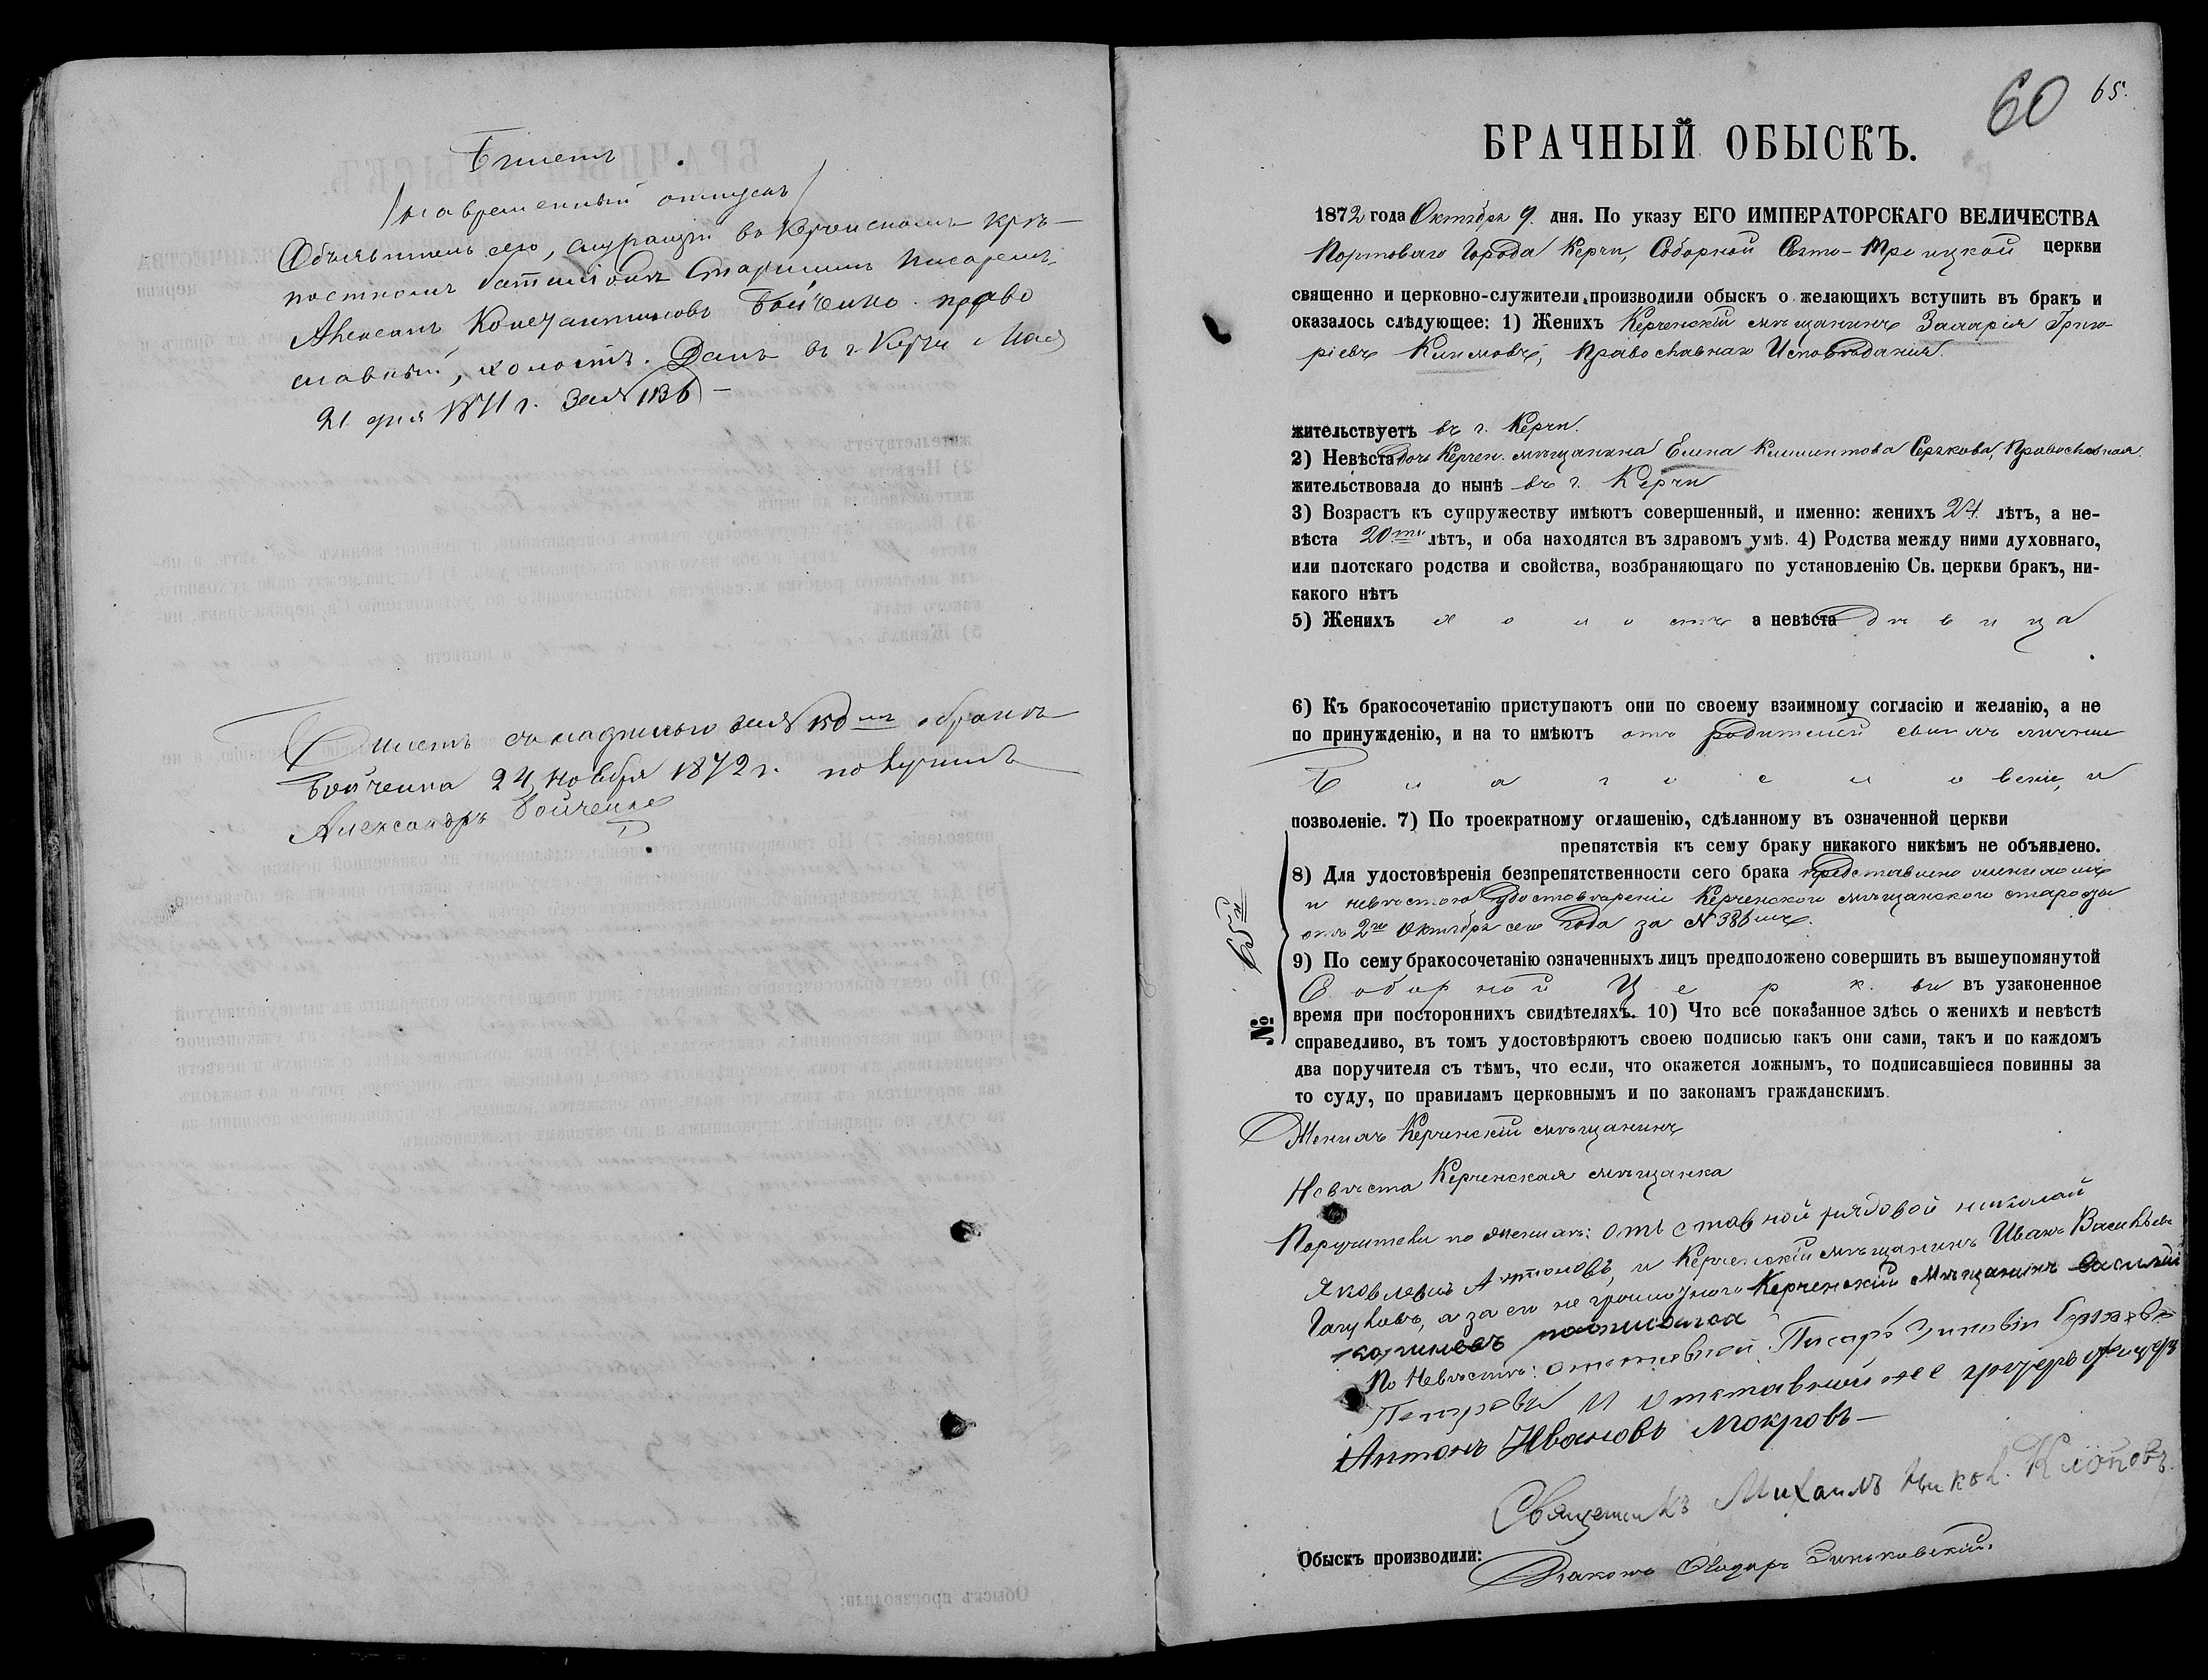 Билетъ
/на временный отпускъ/
Объявитель сего, служащій въ Керченскомъ крѣ-
постномъ баталіонѣ Старшимъ писаремъ
Алексан. Константиновъ Бойченко право
славный, холостъ. Данъ въ г. Керчи Мая
21 дня 1871 г. за № 1136 -
Билетъ съ надписью за № 150мъ о бракѣ
Бойченка 24 Ноября 1872 г. получилъ
Александръ Бойченко
60 65.
БРАЧНЫЙ ОБЫСКЪ.
1872 года Октября 9. дня. По указу ЕГО ИМПЕРАТОРСКАГО ВЕЛИЧЕСТВА
Портоваго Города Керчи, Соборной Свято-Троицкой церкви
священно и церковно-служители производили обыскъ о желающихъ вступить въ бракъ и
оказалось слѣдующее: 1) Женихъ Керченскій мѣщанинъ Захарія Григо-
ріевъ Климовъ, Православнаго Исповѣданія.
жительствуетъ въ г. Керчи.
2) Невѣста дочь Керчен. мѣщанина Елена Климентова Сержкова, Православная.
жительствовала до нынѣ въ г. Керчи
3) Возрастъ къ супружеству имѣютъ совершенный, и именно: женихъ 24 лѣтъ, а не-
вѣста 20ти лѣтъ, и оба находятся въ здравомъ умѣ. 4) Родства между ними духовнаго,
или плотскаго родства и свойства, возбраняющаго по установленію Св. церкви бракъ, ни-
какого нѣтъ
5) Женихъ холостъ а невѣста дѣвица
6) Къ бракосочетанію приступаютъ они по своему взаимному согласію и желанію, а не
по принужденію, и на то имѣютъ отъ родителей своихъ
Благословеніе, и
позволеніе. 7) По троекратному оглашенію, сдѣланному въ означенной церкви
препятствія къ сему браку никакого никѣмъ не объявлено.
8) Для удостовѣренія безпрепятственности сего брака представлено женихомъ
и невѣстою удостовѣреніе Керченскаго мѣщанскаго старосты
отъ 2го Октября сего года за № 386мъ.
№ 65й
9) По сему бракосочетанію означенныхъ лицъ предположено совершить въ вышеупомянутой
Соборной Церкви въ узаконенное
время при постороннихъ свидѣтеляхъ. 10) Что все показанное здѣсь о женихѣ и невѣстѣ
справедливо, въ томъ удостовѣряютъ своею подписью какъ они сами, такъ и по каждомъ
два поручителя съ тѣмъ, что если, что окажется ложнымъ, то подписавшіеся повинны за
то суду, по правиламъ церковнымъ и по законамъ гражданскимъ.
Женихъ Керченскій мѣщанинъ
Невѣста Керченская мѣщанка
Поручители по женихѣ: отъставной рядовой николай
Яковлевъ Антоновъ, и Керченскій мѣщанинъ Иванъ Васильевъ
а за его не грамотнаго Керченскій Мѣщанинъ Василий
подписался
По Невѣстѣ: отставной Писарь Зиновій
Петровъ И отставной
Антонъ Ивановъ Мокровъ-
Священникъ Михаилъ Никол. Клоповъ.
Обыскъ производили:
Діаконъ Ѳеодоръ Зиньковскій.